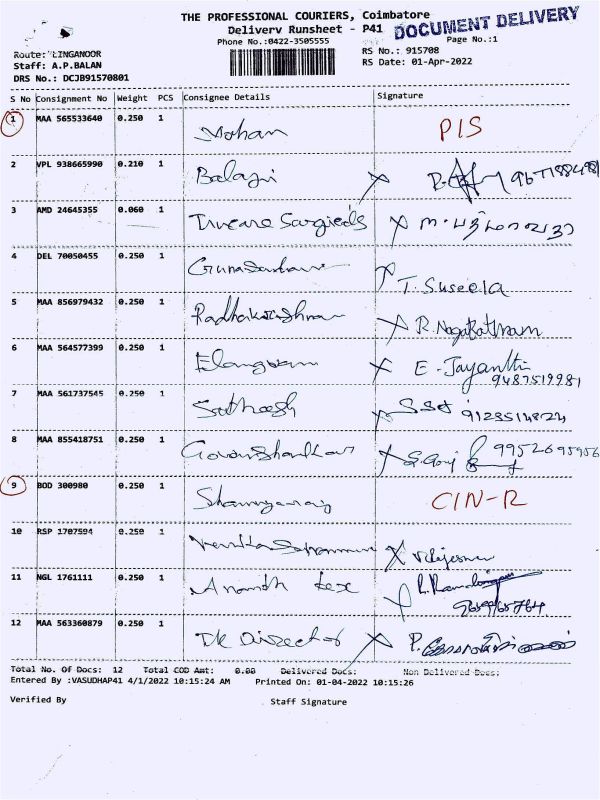 THE PROFESSIONAL COURIERS, Coimbatore
Delivery Runsheet - P41
DOCUMENT DELIVERY
Phone No.:0422-3505555
Page No.:1
Route: LINGANOOR
RS No.: 915708
Staff: A.P.BALAN
RS Date: 01-Apr-2022
DRS No.: DCJB91570801
S No Consignment No Weight PCS Consignee Details Signature
1 MAA 565533640 0.250 1 Mohan PIS
2 VPL 938665990 0.210 1 Balaji
3 AMD 24645355 0.060 1 Trucare Surgicals
4 DEL 70050455 0.250 1 T. Suseela
5 MAA 856979432 0.250 1 Radhakrishnan R. NagaRathnam
6 MAA 564577399 0.250 1 Elangovan E - Jayanthi
9487519981
7 MAA 561737545 0.250 1 Satheesh
8 MAA 855418751 0.250 1 Gowrishankar 9952695956
9 BOD 300980 0.250 1 CIN-R
10 RSP 1707594 0.250 1
11 NGL 1761111 0.250 1 Anandh tex
12 MAA 563360879 0.250 1 Director
Total No. Of Docs: 12 Total COD Amt: 0.00 Delivered Docs: Non Delivered Docs:
Entered By :VASUDHAP41 4/1/2022 10:15:24 AM Printed On: 01-04-2022 10:15:26
Verified By Staff Signature